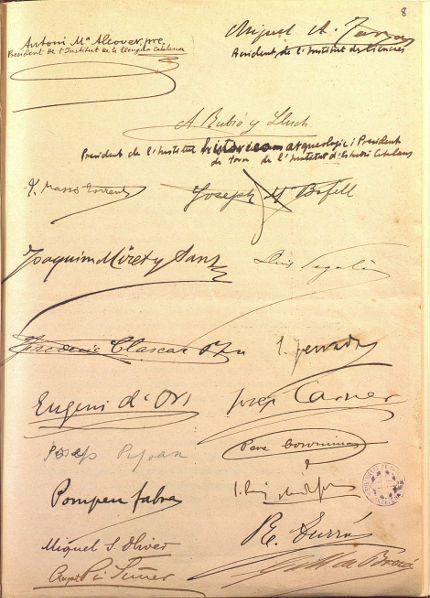 8
Antoni Mª Alcover, pre,
President de l'Institut de la Llengua Catalana
Miquel A.
President de l'Institut de Ciencies
A. Rubió y Lluch
President de l'Institut historicom arqueologic i President
de torn de l'Institut d'Estudis Catalans
J. Massó Torrents
Joseph Mª Bofill
Joaquim Miret y Sans
Lluis Segalà
Frederic Clascar
Eugeni d'Ors
Josep Carner
Pere Coromines
Josep Pijoan
Pompeu Fabra
Miquel S. Oliver
R. Turró
August Pi Suñer